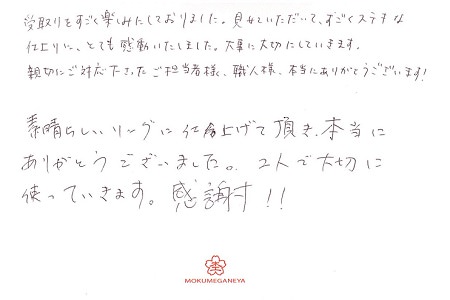 受取りをすごく楽しみにしておりました。見せていただいて、すごくステキな
仕上りに、とても感動いたしました。大事に大切にしていきます。
親切にご対応下さったご担当者様、職人様、本当にありがとうございます!
素晴らしいリングに仕上げて頂き、本当に
ありがとうございました。2人で大切に
使っていきます。感謝!!
MOKUMEGANEYA